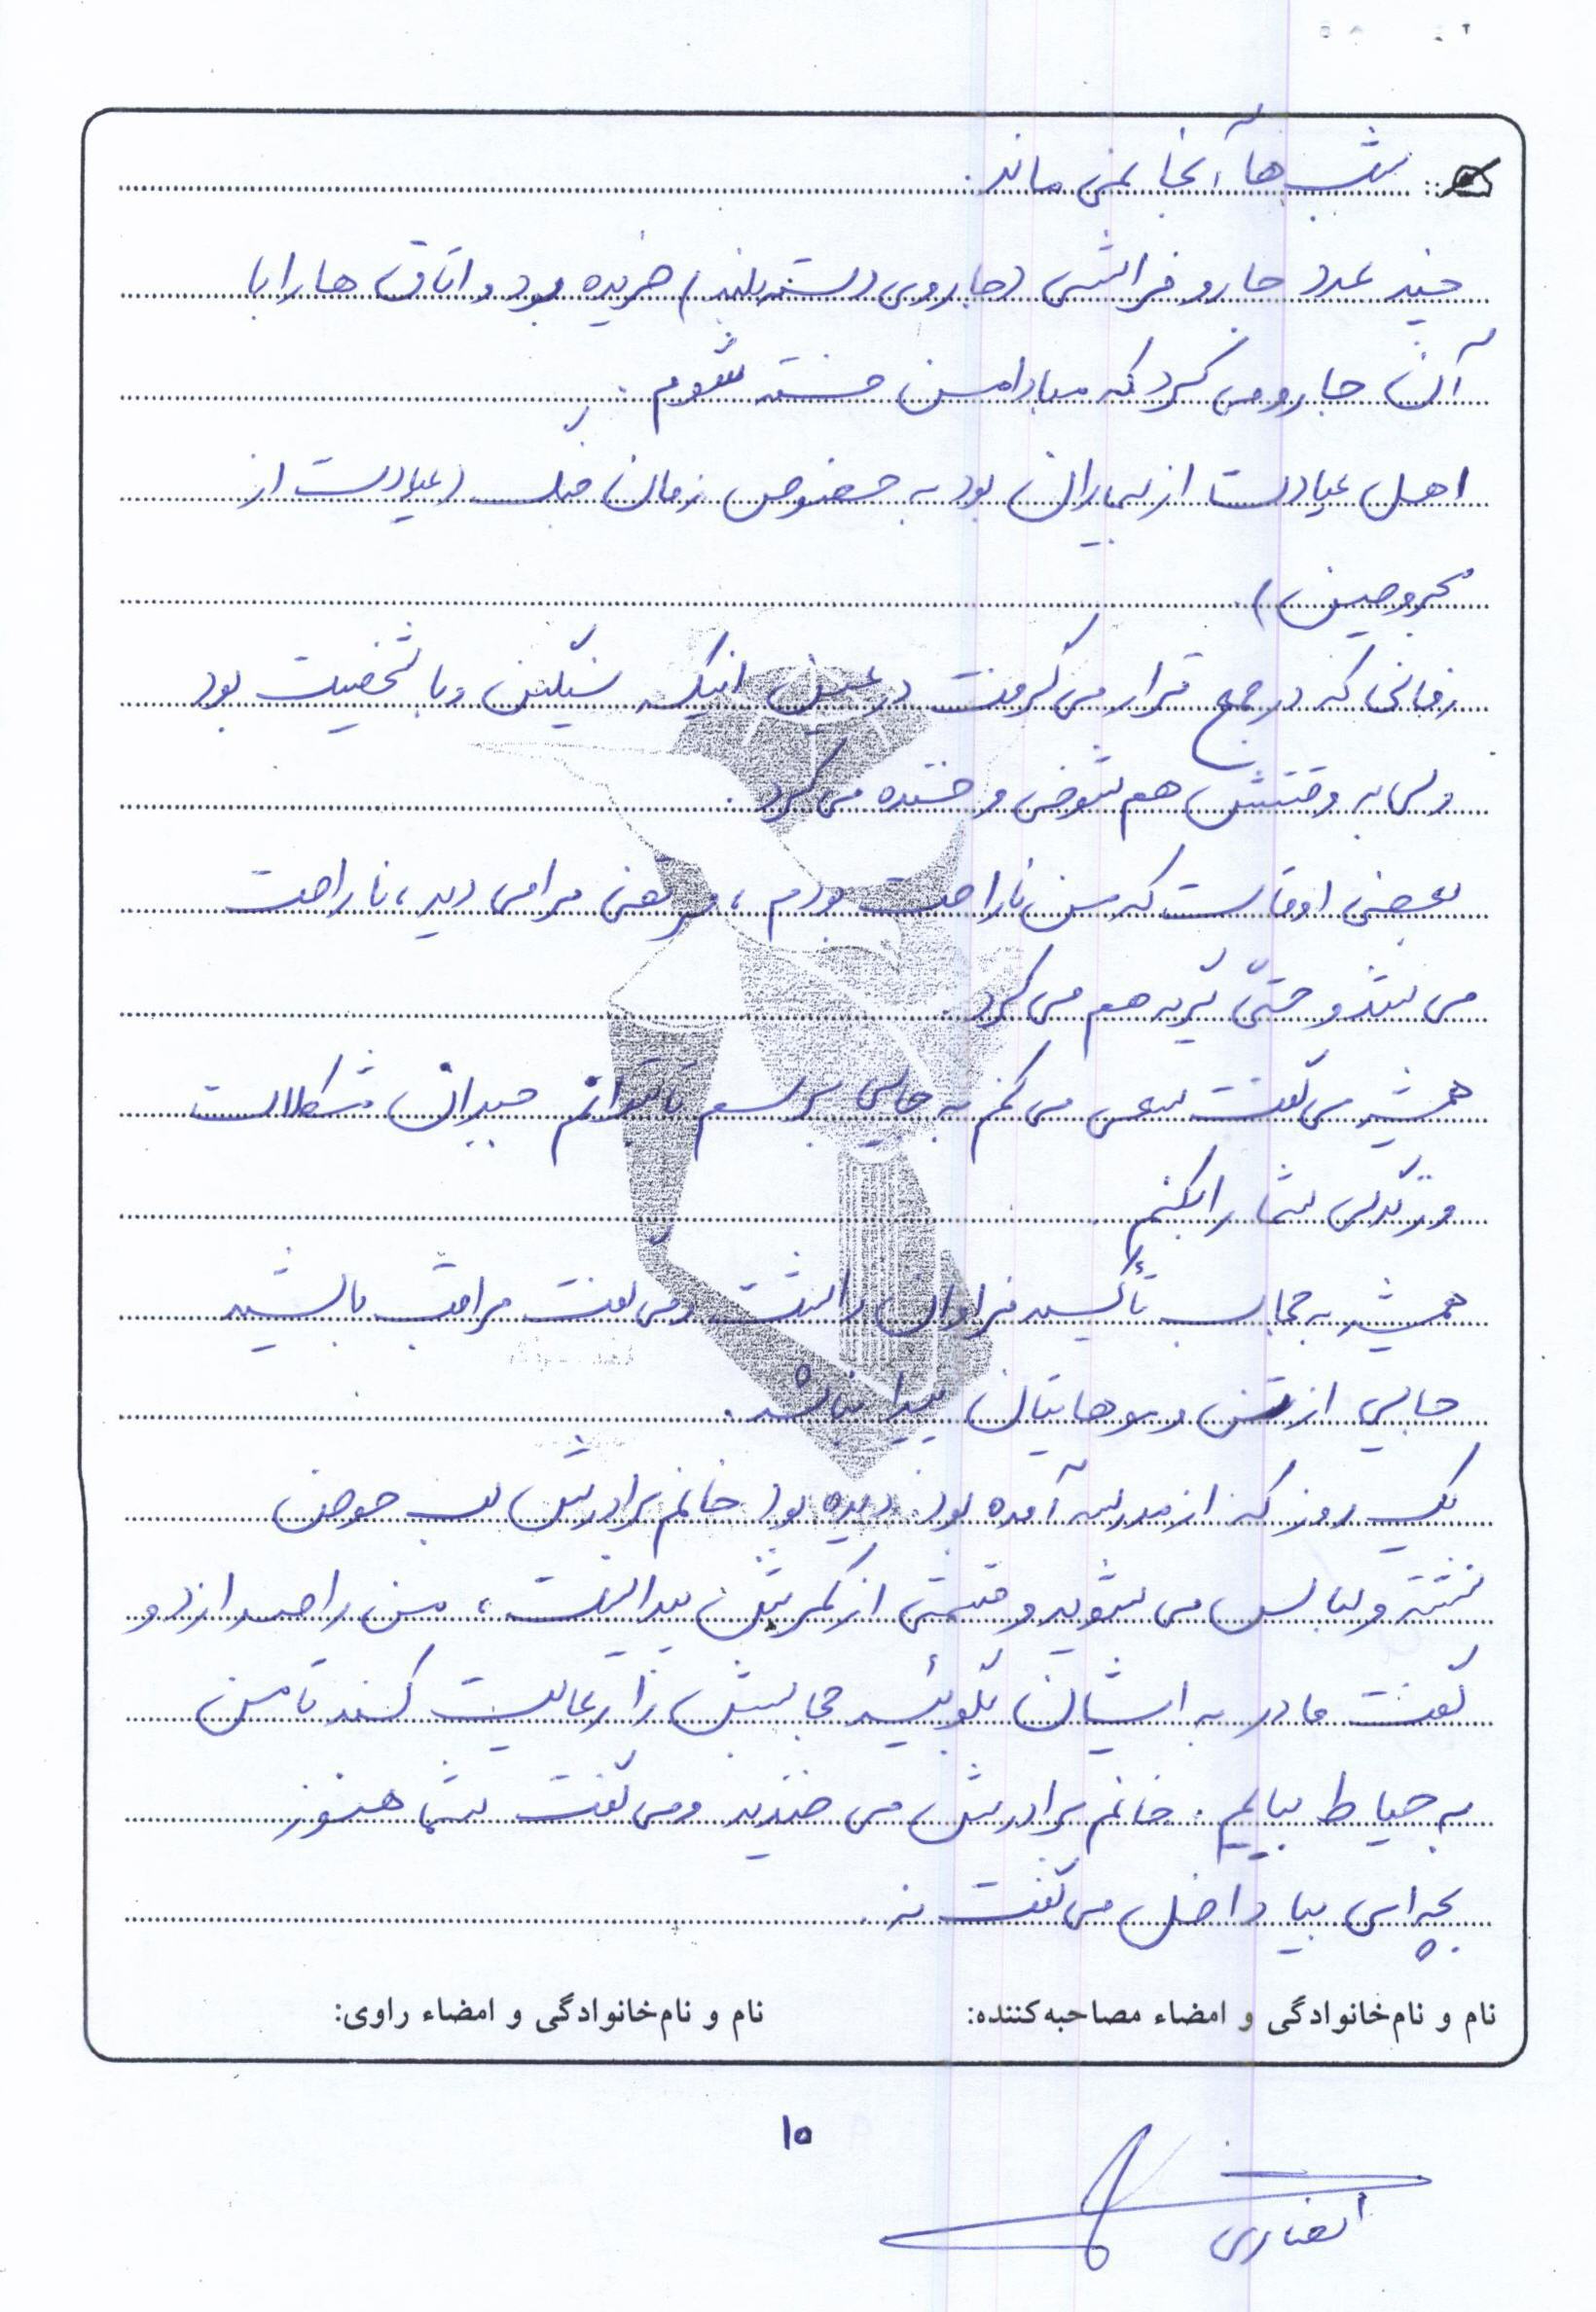 شب ها آنجا نمی ماند.
چند عدد جارو فراشی (جاروی دسته بلند) خریده بود و اتاق ها را با
آن جارو می کرد که مبادا من خسته شوم.
اهل عیادت از بیماران بود به خصوص زمان جنگ (عیادت از
مجروحین)
زمانی که در جمع قرار می گرفت در عین اینکه سنگین و با شخصیت بود
ولی به وقتش هم شوخی و خنده می کرد.
بعضی اوقات که من ناراحت بودم، مرتضی مرا می دید، ناراحت
می شد و حتّی گریه هم می کرد.
همیشه می گفت سعی می کنم به جایی برسم تا بتوانم جبران مشکلات
و زندگی شما را بکنم
همیشه به حجاب تأکید فراوان داشت و می گفت مراقب باشید
جایی از تن و موهایتان پیدا نباشد.
یک روز که از مدرسه آمده بود دیده بود خانم برادرش لب حوض
نشسته و لباس می شوید و قسمتی از کمرش پیداست، من را صدا زد و
گفت مادر به ایشان بگوئید حجابش را رعایت کند تا من
به حیاط بیایم. خانم برادرش می خندید و می گفت شما هنوز
بچه ای بیا داخل می گفت نه
نام و نام‌خانوادگی و امضاء مصاحبه‌کننده: نام و نام‌خانوادگی و امضاء راوی:
۱۵